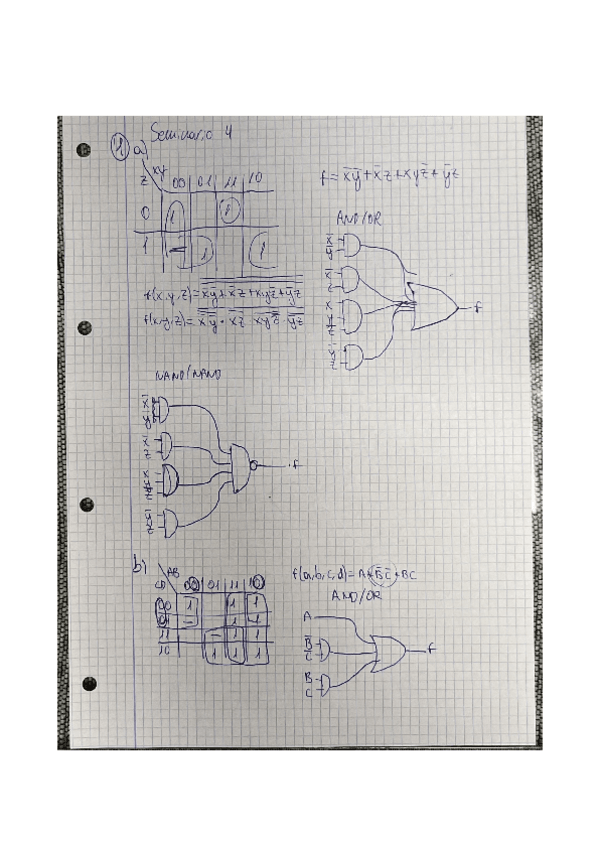 Seminario 4
1 a)
xy
z 00 01 11 10
0 1 1
1 – 1 1
f = x̄ȳ + x̄z + xyz̄ + ȳz
AND/OR
x̄
ȳ
x̄
z
x
y
z̄
ȳ
z
f
f(x,y,z) = x̄ȳ + x̄z + xyz̄ + ȳz
f(x,y,z) = x̄ȳ · x̄z · xyz̄ · ȳz
NAND/NAND
x̄
ȳ
x̄
z
x
y
z̄
ȳ
z
f
b)
AB
CD 00 01 11 10
00 1 1 1
01 – 1 1
11 – 1 1
10 1 1 1
f(a,b,c,d) = A + B̄C̄ + BC
AND/OR
A
B̄
C̄
B
C
f